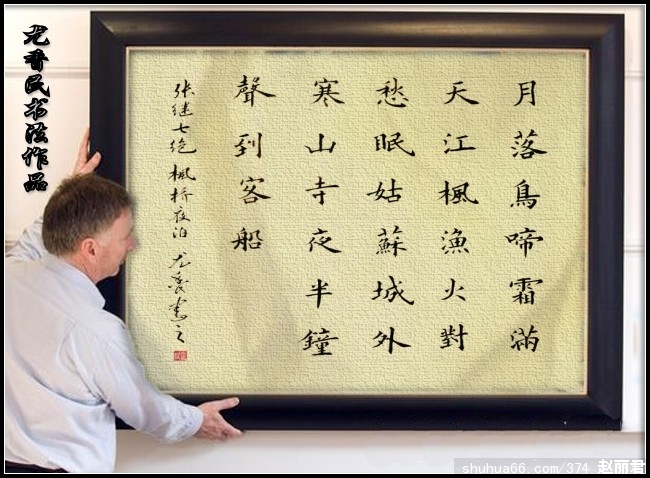 尤香民书法作品
月落鳥啼霜滿
天江楓漁火對
愁眠姑蘇城外
寒山寺夜半鐘
聲到客船
张继七绝 楓桥夜泊 尤
shuhua66.com/374 赵丽君